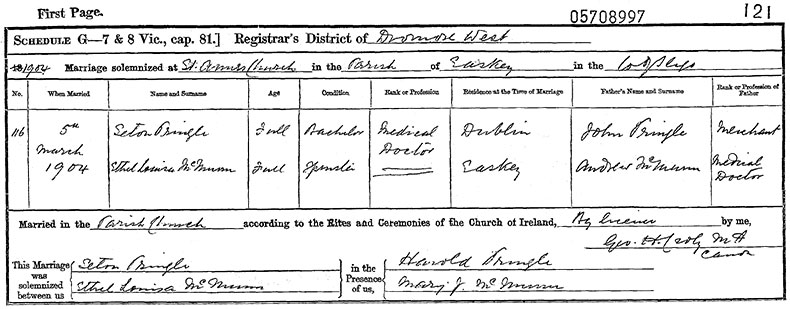 First Page.
05708997
121
SCHEDULE G—7 & 8 Vic., cap. 81.] Registrar's District of Dromore West
1904 Marriage solemnized at St. Anne's Church in the Parish of Easkey in the Co of Sligo
No. When Married Name and Surname Age Condition Rank or Profession Residence at the Time of Marriage Father's Name and Surname Rank or Profession of Father
116 5th March 1904 Seton Pringle Full Bachelor Medical Doctor Dublin John Pringle Merchant
Ethel Louisa McMunn Full Spinster Easkey Andrew McMunn Medical Doctor
Married in the Parish Church according to the Rites and Ceremonies of the Church of Ireland, By License by me,
Geo. H. Croly MA
Canon
This Marriage was solemnized between us
Seton Pringle
Ethel Louisa McMunn
in the Presence of us,
Harold Pringle
Mary J. McMunn